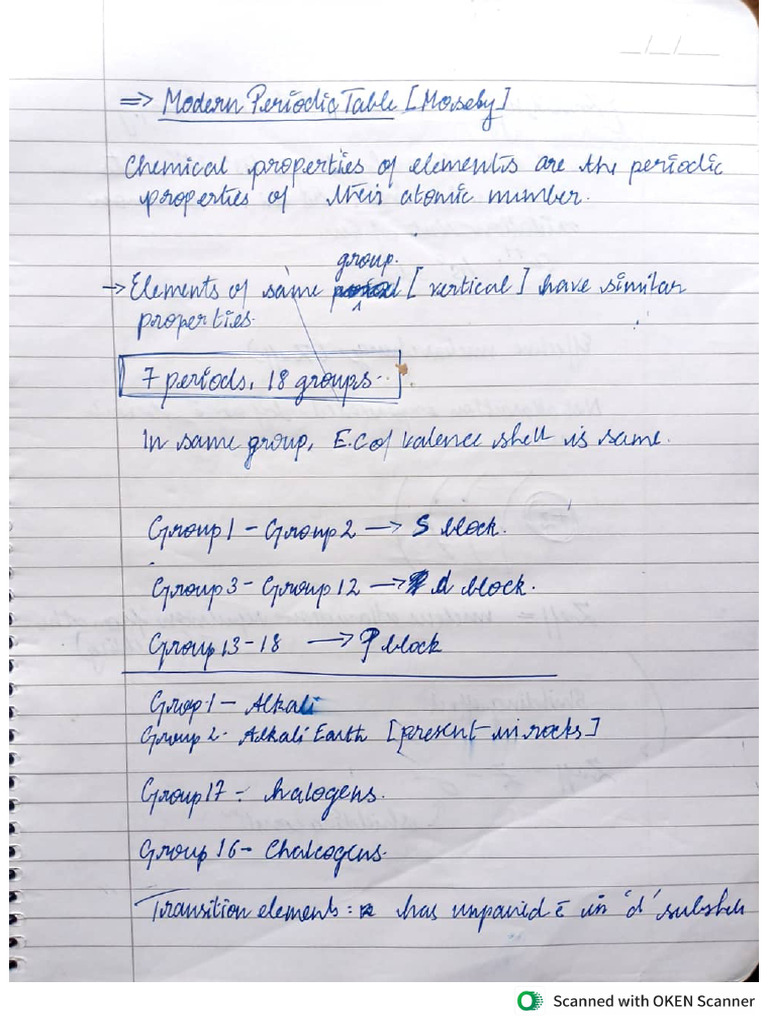 __/__/__
=> Modern Periodic Table [Moseby]
Chemical properties of elements are the periodic
properties of their atomic number.
group.
→ Elements of same [vertical] have similar
properties.
7 periods, 18 groups.
In same group, E.C of valence shell is same.
Group 1 - Group 2 → S block.
Group 3 - Group 12 → d block.
Group 13-18 → P block
Group 1 - Alkali
Group 2 - Alkali Earth [present in rocks]
Group 17 - halogens.
Group 16 - Chalcogens.
Transition elements: has unpaired ē in 'd' subshell
Scanned with OKEN Scanner